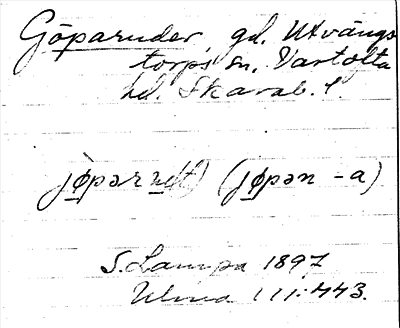 Göparuder, gd. Utvängs
torps sn. Vartofta
hd. Skarab. l.
(jøpən -a)
S. Lampa 1897
Ulma 111:443.